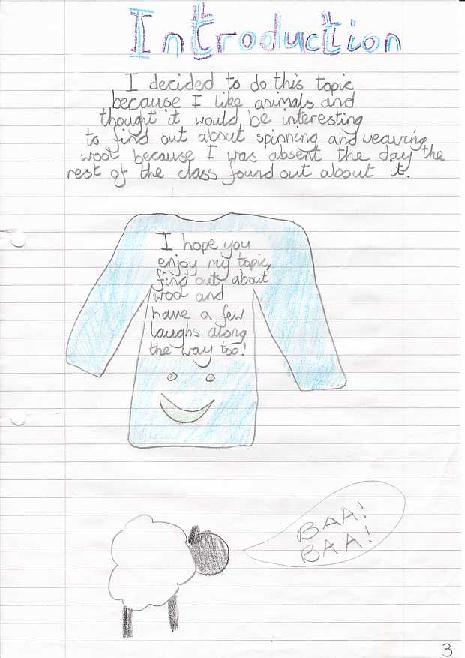 Introduction
I decided to do this topic
because I like animals and
thought it would be interesting
to find out about spinning and weaving
wool because I was absent the day the
rest of the class found out about it.
I hope you
enjoy my topic,
find out about
wool and
have a few
laughs along
the way too!
BAA!
BAA!
3